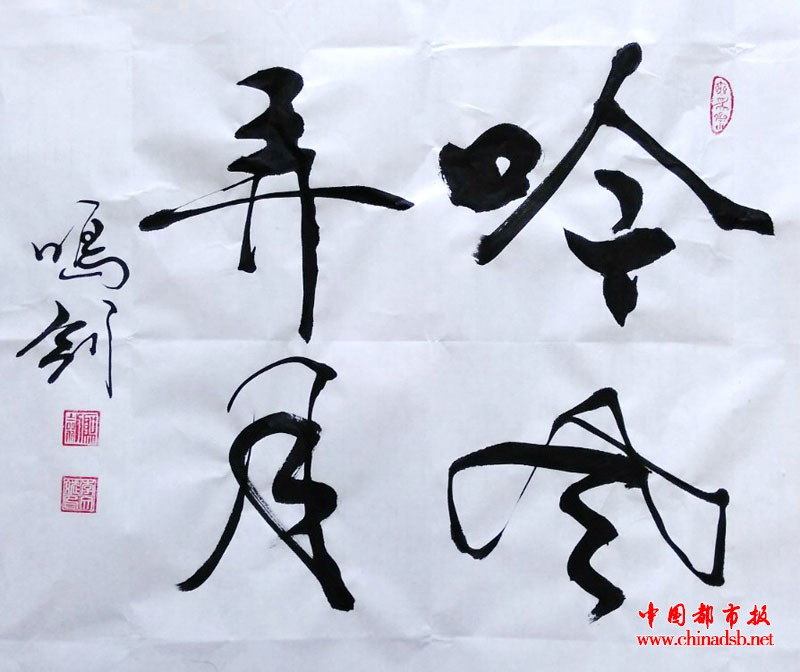 吟风
弄月
鸣剑
中国都市报
www.chinadsb.net